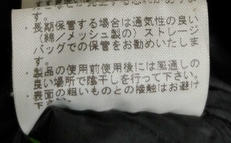 ・長期保管する場合は通気性の良い
(綿/メッシュ製の) ストレージ
バッグでの保管をお勧めいたしま
す。
・製品の使用前使用後には風通しの
良い場所で陰干しを行って下さい。
・表面の粗いものとの接触はお避け
下さい